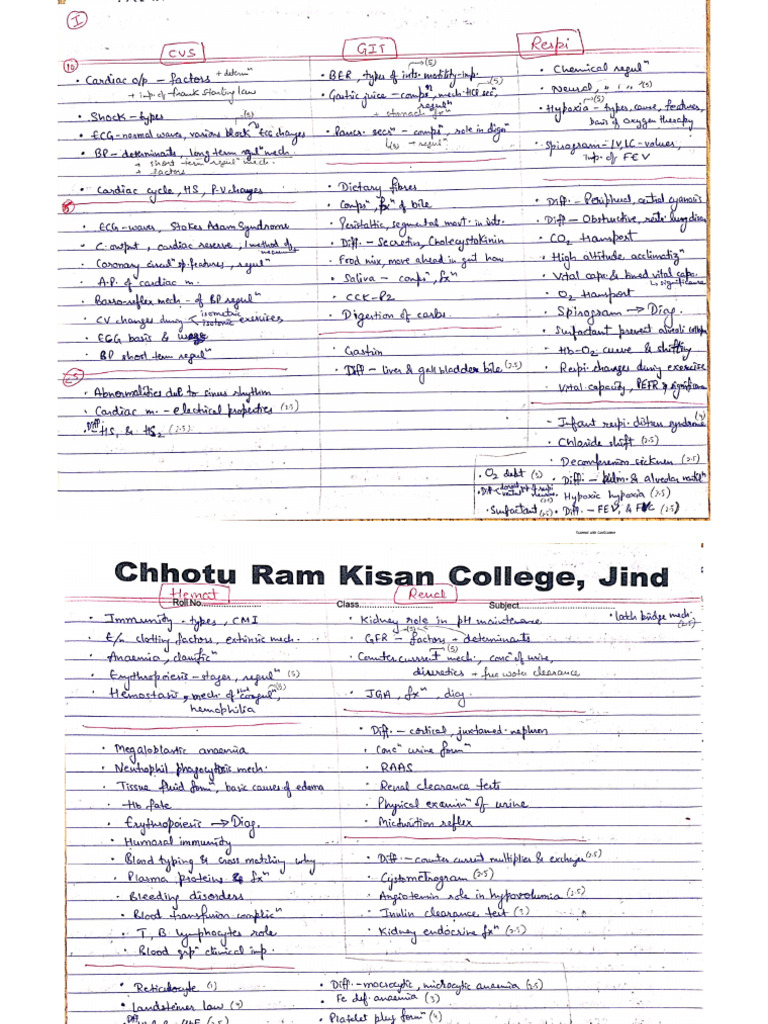 I
CVS
GIT
Respi
10
• Cardiac o/p - factors + determ^n
+ imp of frank starling law
• Shock - types
• ECG - normal waves, various block, ECG changes (5)
• BP - determinants, long term regul^n mech.
+ short term regul^n mech.
+ factors
• Cardiac cycle, HS, P.V. changes
5
• ECG - waves, Stokes Adam Syndrome
• C. output, cardiac reserve, 1 method of measuring
• Coronary circul^n of features, regul^n
• A.P. of cardiac m.
• Baro-reflex mech - of BP regul^n
• CV changes during isometric isotonic exercises
• ECG basis & usage
• BP short term regul^n
2.5
• Abnormalities del to sinus rhythm
• Cardiac m. - electrical properties (2.5)
• Diff - HS, & HS2 (2.5)
• BER, types of ints. motility - imp. (5)
• Gastric juice - comps^n, mech. HCl sec^n, regul^n (5)
+ stomach fx^n
• Pancr. sec^n - comps^n, role in dign^n
(5) → regul^n
• Dietary fibres
• Comps^n, fx^n of bile
• Peristaltic, segmental movt. in ints.
• Diff. - Secretin, Cholecystokinin
• Food mix, move ahead in git how
• Saliva - comps^n, fx^n
• CCK-PZ
• Digestion of carbs.
• Gastrin
• Diff - liver & gall bladder bile (2.5)
• Chemical regul^n
• Neural, " " (5)
• Hypoxia - types, cause, features, basis of oxygen therapy (5)
• Spirogram - LV, LC - values, imp. of FEV
• Diff. - Peripheral, central cyanosis
• Diff - Obstructive, restr. lung diseas
• CO2 transport
• High altitude acclimatiz^n
• Vital capa. & timed vital capa.
↳ significance
• O2 transport
• Spirogram → Diag.
• Surfactant prevent alveoli collaps
• Hb-O2 curve & shifting
• Respi changes during exercise
• Vital capacity, PEFR & significance
• Infant respi. distress syndrome
• Chloride shift (2.5)
• Decompression sickness (2.5)
• O2 debt
• Diff. - pulm. & alveolar ventil^n
• Hypoxic hypoxia (2.5)
• Surfactant (2.5)
• Diff. - FEV, & FVC (2.5)
Scanned with CamScanner
Chhotu Ram Kisan College, Jind
Hemat
Renal
Roll No.
Class
Subject
• Immunity - types, CMI
• E/n clotting factors, extrinsic mech.
• Anaemia, classific^n
• Erythropoiesis - stages, regul^n (5)
• Hemostasis, mech. of blood coagul^n (5)
hemophilia
• Megaloblastic anaemia
• Neutrophil phagocytosis mech.
• Tissue fluid form^n, basic causes of edema
• Hb fate
• Erythropoiesis → Diag.
• Humoral immunity
• Blood typing & cross matching why
• Plasma proteins & fx^n
• Bleeding disorders
• Blood transfusion complic^n
• T, B lymphocytes role
• Blood grp^n clinical imp.
• Kidney role in pH maintenance
• latch bridge mech. (2.5)
• GFR - factors - determinants (5)
• Countercurrent mech., conc^n of urine, (5)
diuretics + free water clearance
• JGA, fx^n, diag.
• Diff. - cortical, juxtamed. nephron
• Conc^n urine form^n
• RAAS
• Renal clearance tests
• Physical examin^n of urine
• Micturition reflex
• Diff. - counter current multiplier & exchager (2.5)
• Cystometrogram (2.5)
• Angiotensin role in hypovolumia (2.5)
• Inulin clearance test
• Kidney endocrine fx^n (2.5)
• Reticulocyte
• Landsteiner law
• Diff. - macrocytic, microcytic anaemia (2.5)
• Fe def. anaemia
• Platelet plug form^n